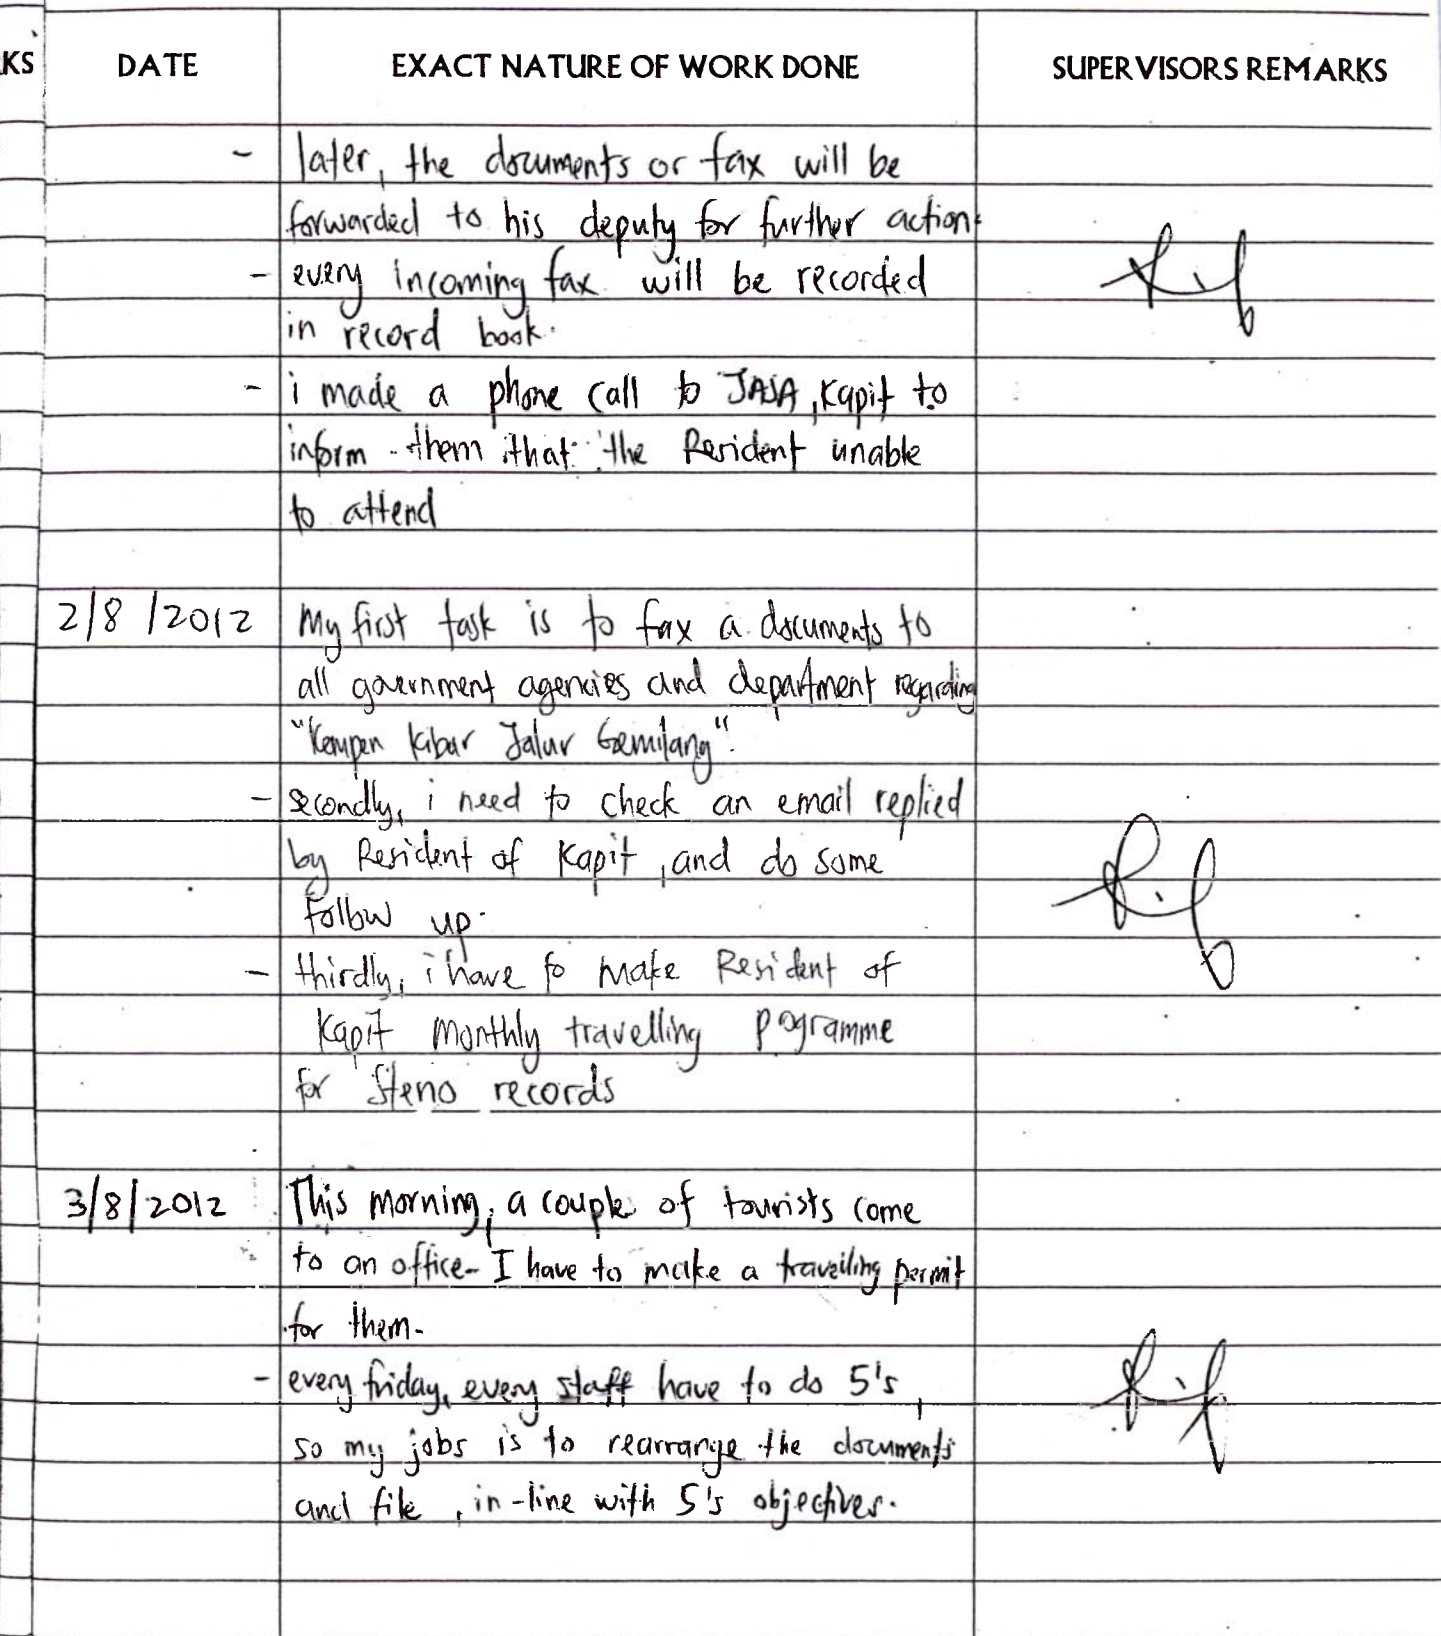 KS DATE EXACT NATURE OF WORK DONE SUPERVISORS REMARKS
- later, the documents or fax will be
forwarded to his deputy for further action.
- every incoming fax will be recorded
in record book.
- i made a phone call to JASA, Kapit to
inform them that the Resident unable
to attend
2/8/2012 My first task is to fax a documents to
all government agencies and department regarding
"Kempen Kibar Jalur Gemilang".
- secondly, i need to check an email replied
by Resident of Kapit, and do some
follow up.
- thirdly, i have to make Resident of
Kapit monthly travelling pogramme
for Steno records
3/8/2012 This morning, a couple of tourists come
to an office- I have to make a travelling permit
for them-
- every friday, every staff have to do 5's,
so my jobs is to rearrange the documents
and file, in-line with 5's objectives.